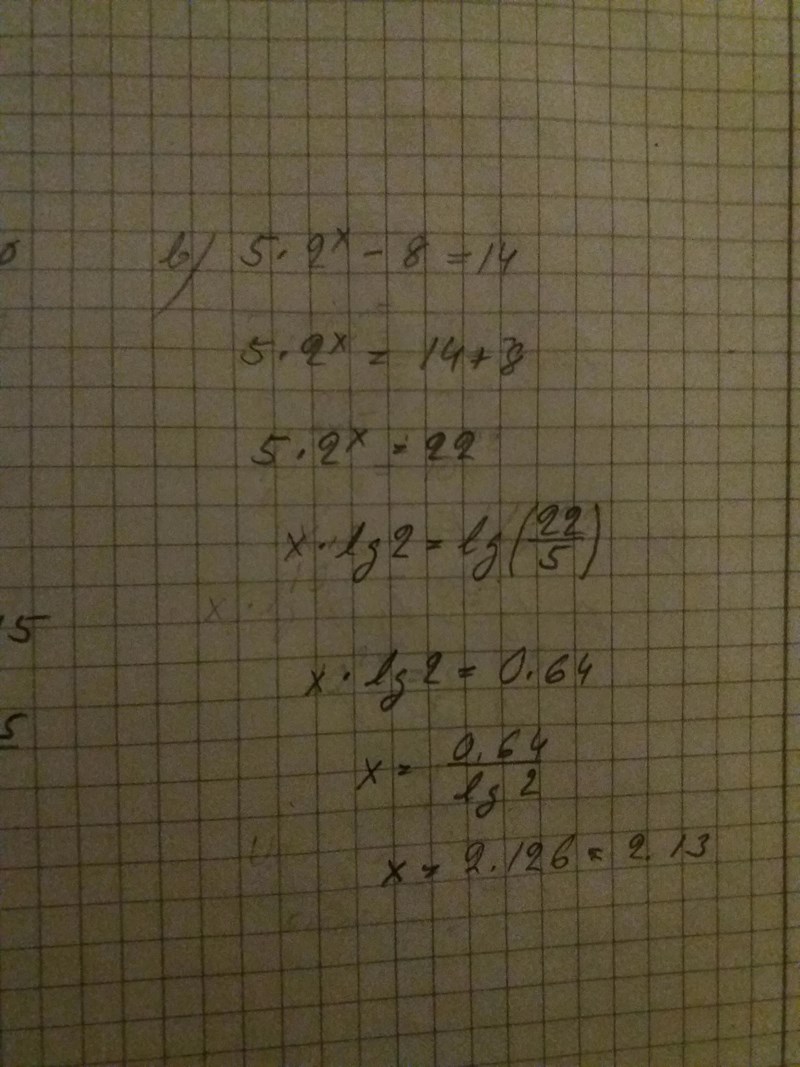 b) 5·2^x - 8 = 14
5·2^x = 14+8
5·2^x = 22
x·lg2 = lg(22/5)
x·
15
x·lg2 = 0.64
5
x = 0.64/lg 2
x = 2.126 = 2.13